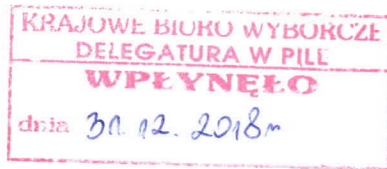 KRAJOWE BIURO WYBORCZE
DELEGATURA W PILE
WPŁYNĘŁO
dnia 31.12.2018r